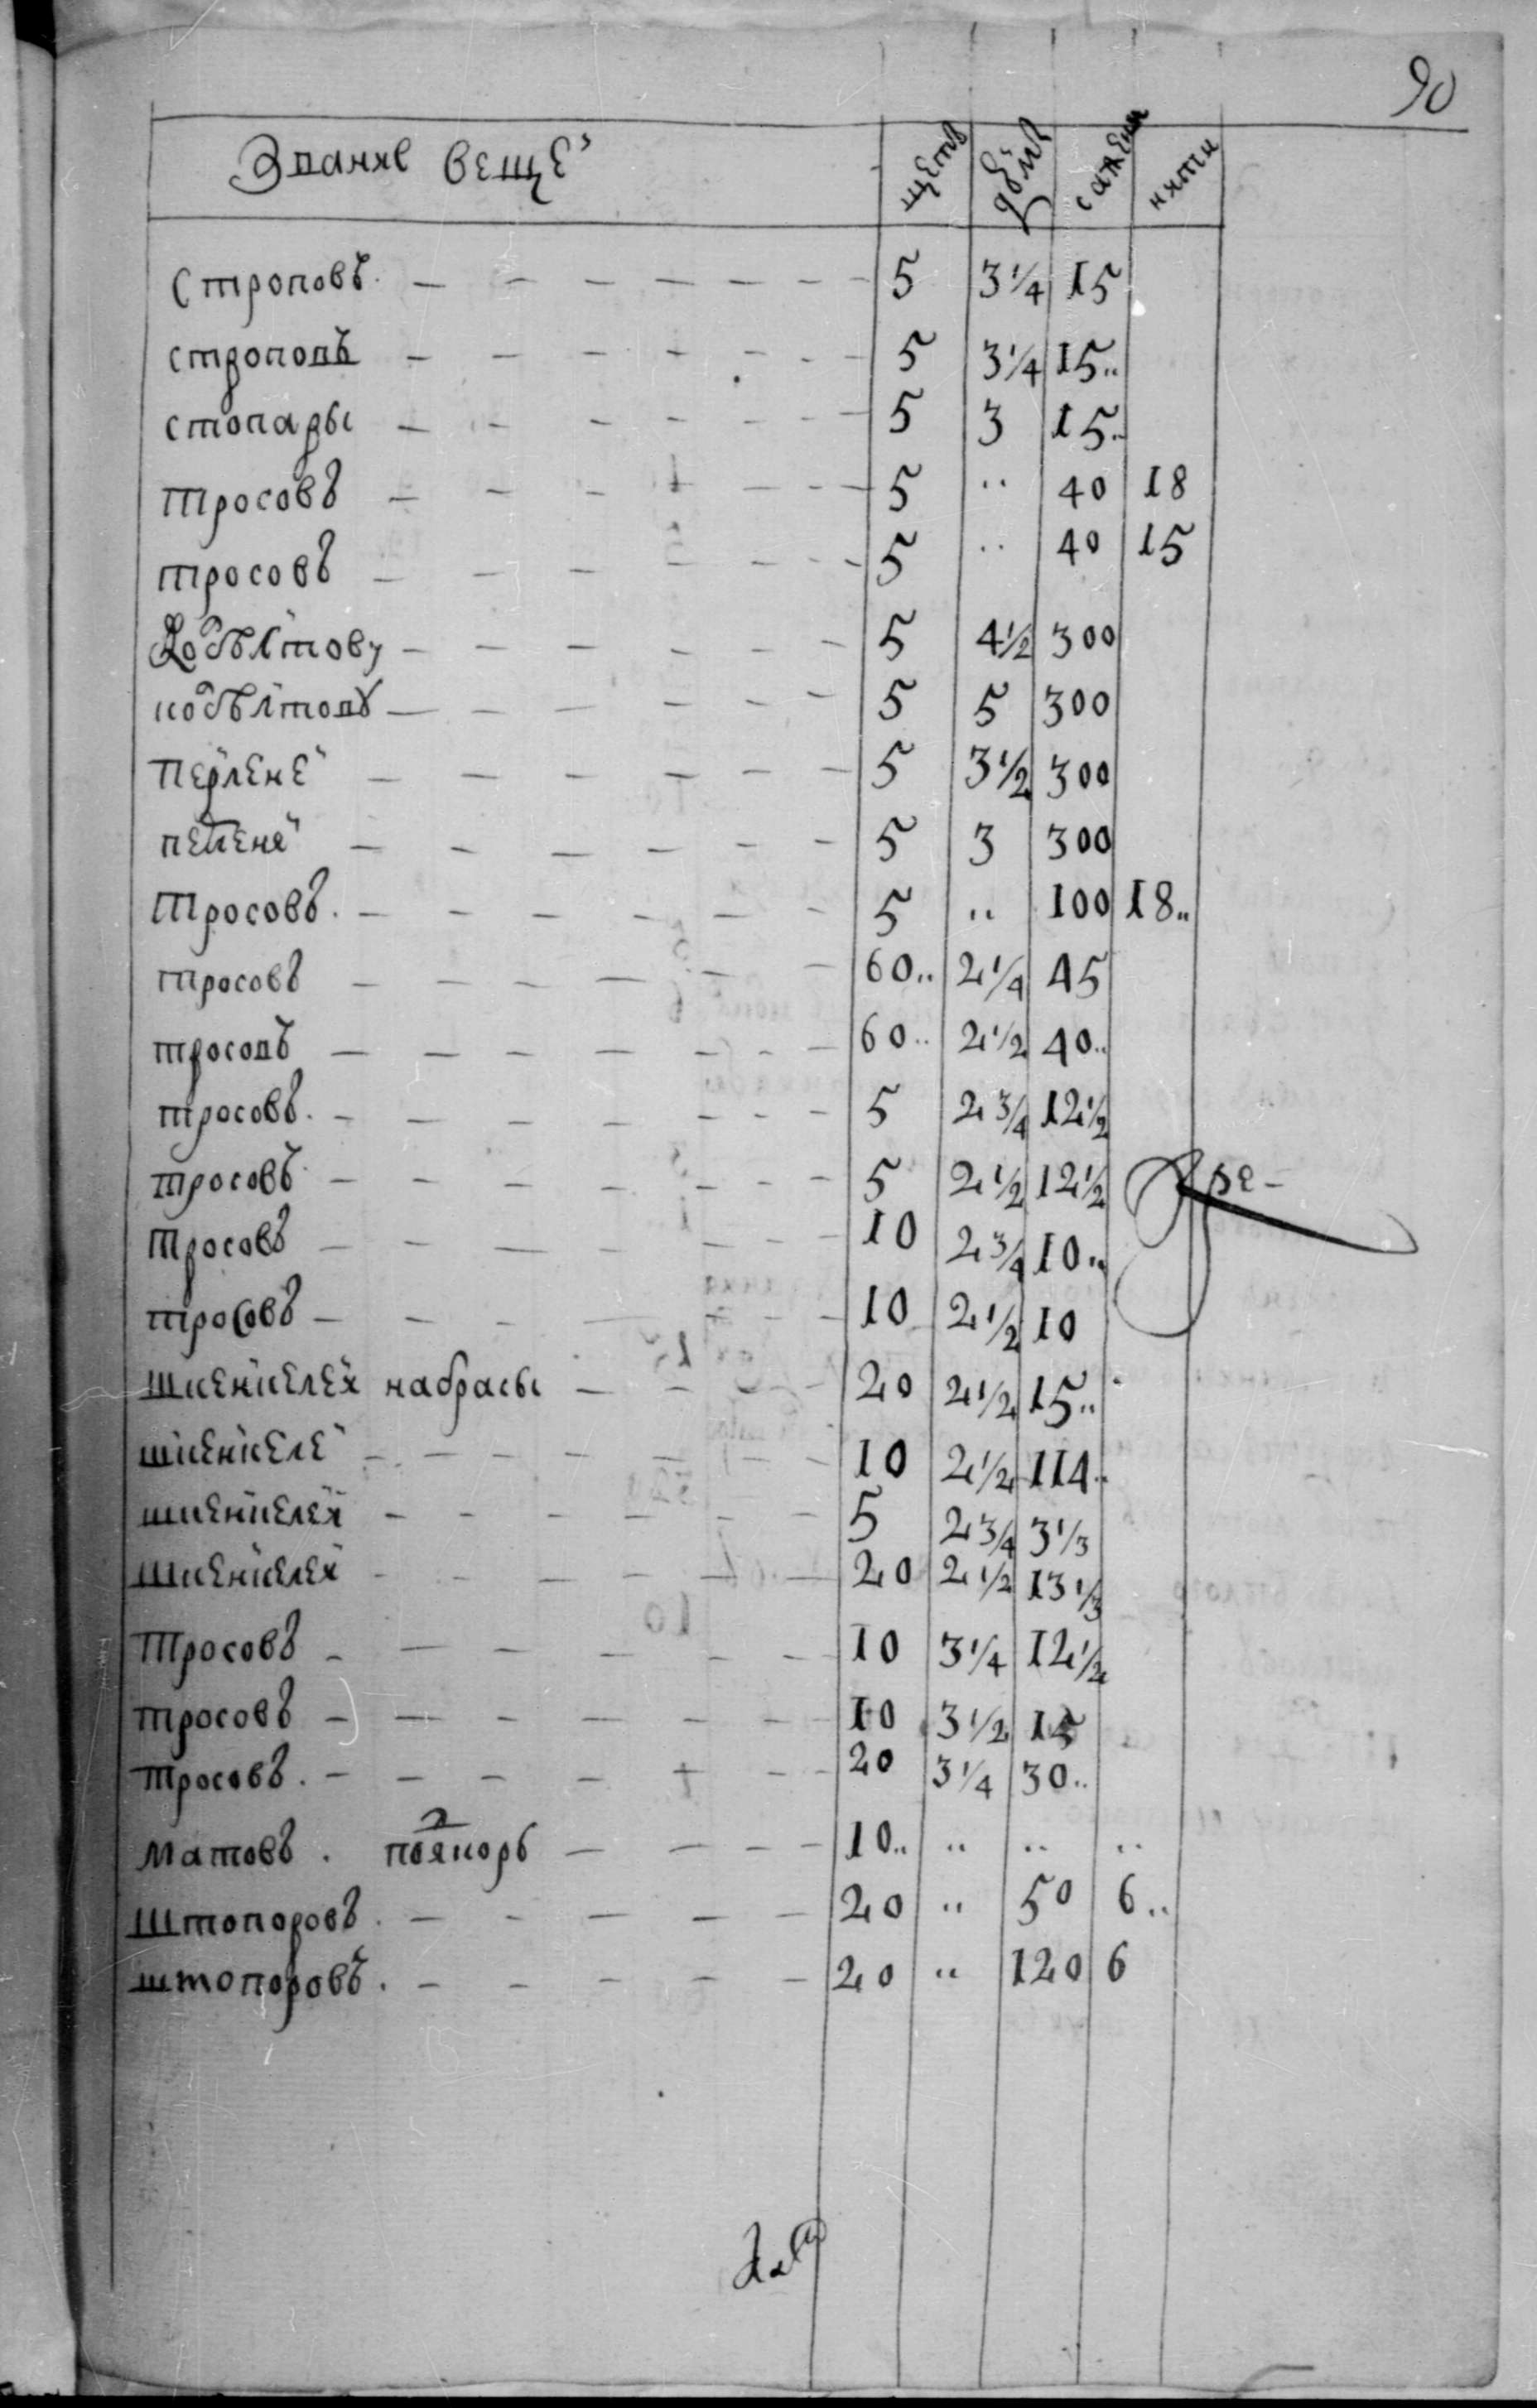 90
Звание вещей щетъ дюймъ сажени нити
Строповъ 5 3 1/4 15
строповъ 5 3 1/4 15
стопары 5 3 15
тросовъ 5 40 18
тросовъ 5 40 15
Кобылтову 5 4 1/2 300
кобылтову 5 5 300
перленей 5 3 1/2 300
перленей 5 3 300
тросовъ 5 100 18
тросовъ 60 2 1/4 45
тросовъ 60 2 1/2 40
тросовъ 5 2 3/4 12 1/2
тросовъ 5 2 1/2 12 1/2
тросовъ 10 2 3/4 10
тросовъ 10 2 1/2 10
шкенкелей набрасы 20 2 1/2 15
шкенкеле 10 2 1/2 114
шкенкелей 5 2 3/4 3 1/3
шкенкелей 20 2 1/2 13 1/3
тросовъ 10 3 1/4 12 1/2
тросовъ 10 3 1/2 15
тросовъ 20 3 1/4 30
матовъ подякорь 10
штопоровъ 20 50 6
штопоровъ 20 120 6